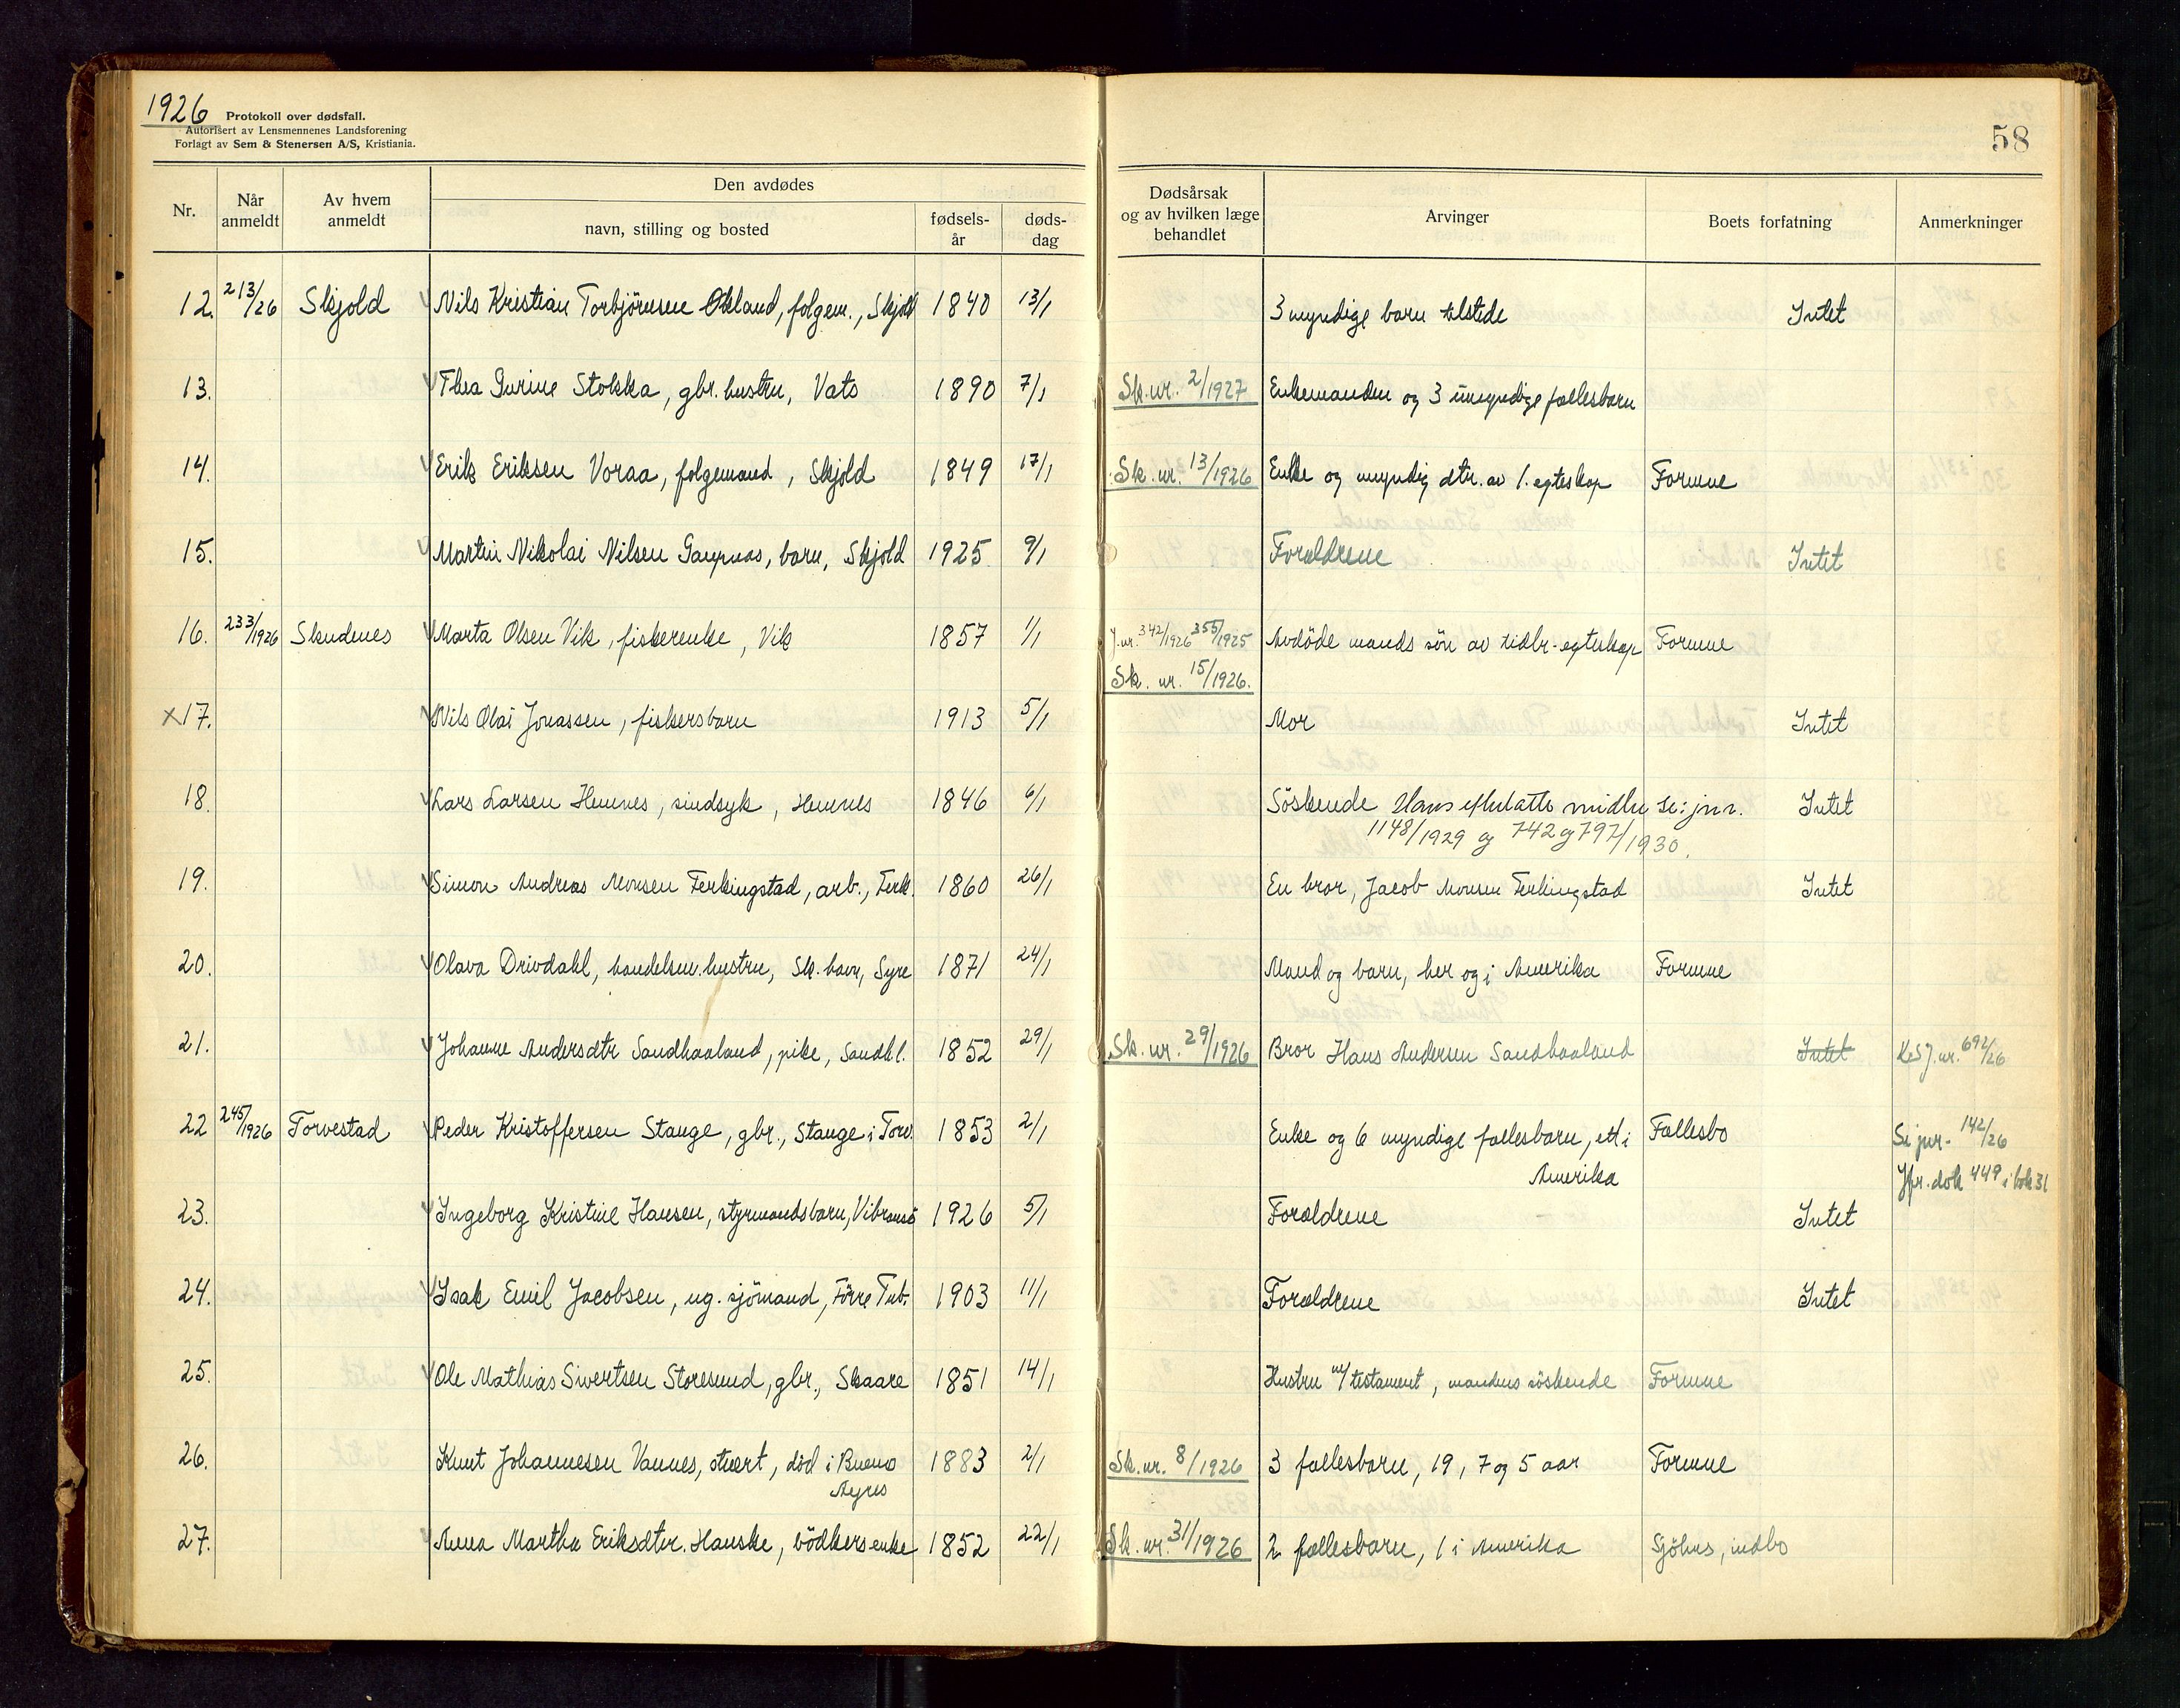 1926
Protokoll over dødsfall.
Autorisert av Lensmennenes Landsforening
Forlagt av Sem & Stenersen A/S, Kristiania.
58
Nr. Når anmeldt Av hvem anmeldt Den avdødes navn, stilling og bosted fødsels-år døds-dag Dødsårsak og av hvilken læge behandlet Arvinger Boets forfatning Anmerkninger
12. 213/26 Skjold Nils Kristian TorbjörnsenÖkland, folgem., Skjold 1840 13/1 3 myndige barn tilstede Intet
13. Thea Gurine Stokka, gbr. hustru, Vats 1890 7/1 Sk. nr. 2/1927 Enkemanden og 3 umyndige fællesbarn
14. Erik Eriksen Voraa, folgemand, Skjold 1849 17/1 Sk. nr. 13/1926 Enke og myndig dtr. av 1. egteskap Formue
15. Martin Nikolai Nilsen, barn, Skjold 1925 9/1 Forældrene Intet
16. 233/1926 Skudenes Marta Olsen Vik, fiskerenke, Vik 1857 1/1 J. nr. 342/1926 355/1925 Avdöde mands sön av tidlr. egteskap Formue
Sk. nr. 15/1926.
x17. Nils Olai Jonassen, fiskersbarn 1913 5/1 Mor Intet
18. Lars Larsen Hemnes, sindsyk, Hemnes 1846 6/1 Söskende Hans efterlatte midler se: jnr. Intet
1148/1929 og 742 og 797/1930.
19. Simon Andreas Monsen Ferkingstad, arb., Ferk. 1860 26/1 En bror, Jacob Monsen Ferkingstad Intet
20. Olava Drivdahl, handelsm. hustru, Sk. havn, Syre 1871 24/1 Mand og barn, her og i Amerika Formue
21. Johanne Andersdtr Sandhaaland, pike, Sandhl. 1852 29/1 Sk. nr. 29/1926 Bror Hans Andersen Sandhaaland Intet J. nr. 692/26
22 245/1926 Torvestad Peder Kristoffersen Stange, gbr., Stange i Torv. 1853 2/1 Enke og 6 myndige fællesbarn, ett i Fællesbo Se jnr. 142/26
Amerika Jfr. dok 449 i bok 31
23. Ingeborg Kristine Hansen, styrmandsbarn, Vibransö 1926 5/1 Forældrene Intet
24. Isak Emil Jacobsen, ug. sjömand, Förre Tub. 1903 11/1 Forældrene Intet
25. Ole Mathias Sivertsen Storesund, gbr., Skaare 1851 14/1 Hustru m/testament, mandens söskende Formue
26. Knut Johannesen Vannes, stuert, död i Bueno 1883 2/1 Sk. nr. 8/1926 3 fællesbarn, 19, 7 og 5 aar Formue
Ayres
27. Anna Martha Eriksdtr. Hauske, bödkersenke 1852 22/1 Sk. nr. 31/1926 2 fællesbarn, 1 i Amerika Sjöhus, indbo